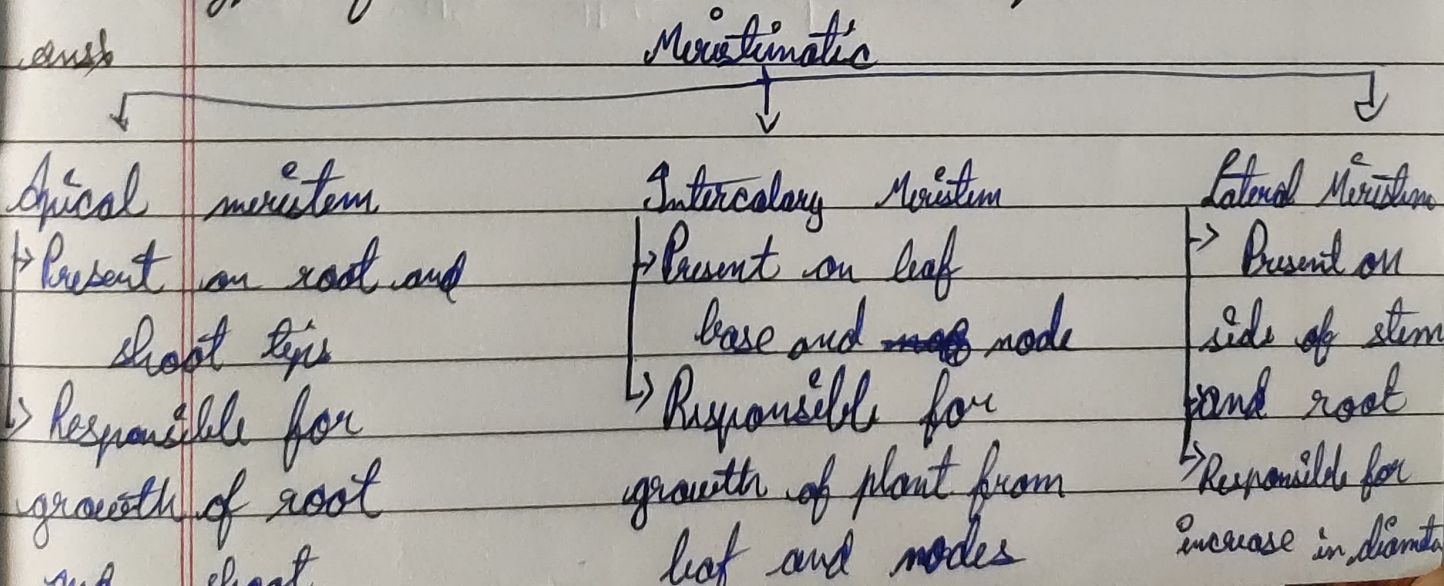 ans
Meristimatic
Apical meristem
Present on root and
shoot tips
Responsible for
growth of root
and shoot
Intercalary Meristem
Present on leaf
base and node
Responsible for
growth of plant from
leaf and nodes
Lateral Meristem
Present on
side of stem
and root
Responsible for
increase in diameter